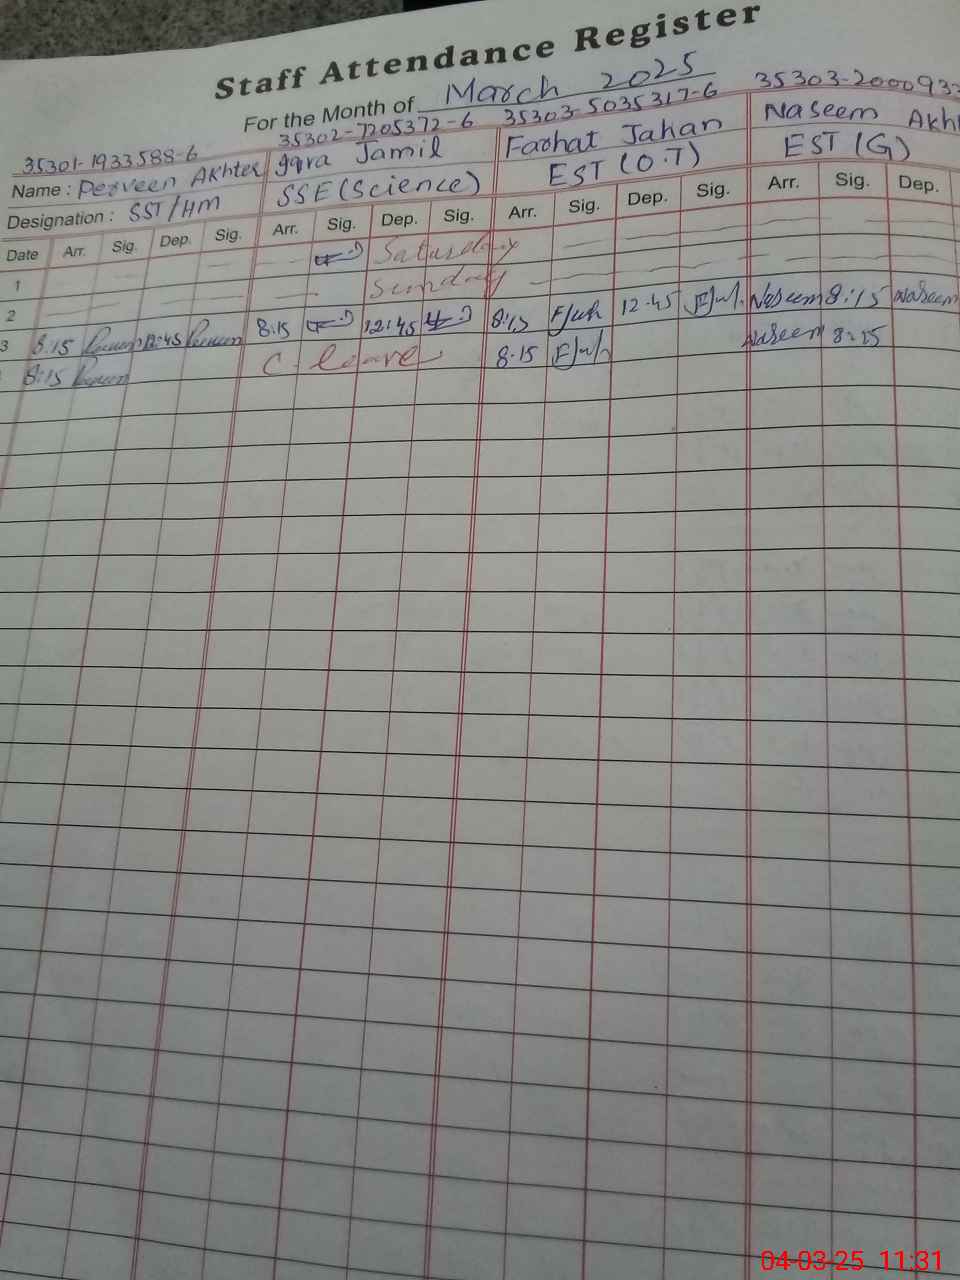 Staff Attendance Register
For the Month of March 2025
35301-1933588-6 35302-7205372-6 35303-5035317-6 35303-2000933
Name : Perveen Akhter Iqra Jamil Farhat Jahan Naseem Akht
Designation : SST/HM SSE(Science) EST (O.T) EST (G)
Date Arr. Sig. Dep. Sig. Arr. Sig. Dep. Sig. Arr. Sig. Dep. Sig. Arr. Sig. Dep.
1 Saturday
2 Sunday
3 8:15 12:45 8:15 12:45 8:15 12.45 Naseem 8:15 Naseem
8:15 C. leave 8.15 Naseem 8:15
04-03-25 11:31